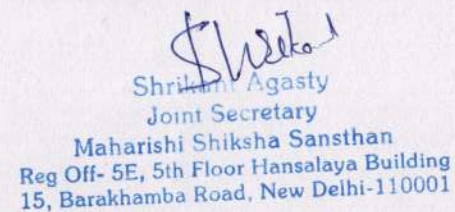 Shrikant Agasty
Joint Secretary
Maharishi Shiksha Sansthan
Reg Off- 5E, 5th Floor Hansalaya Building
15, Barakhamba Road, New Delhi-110001